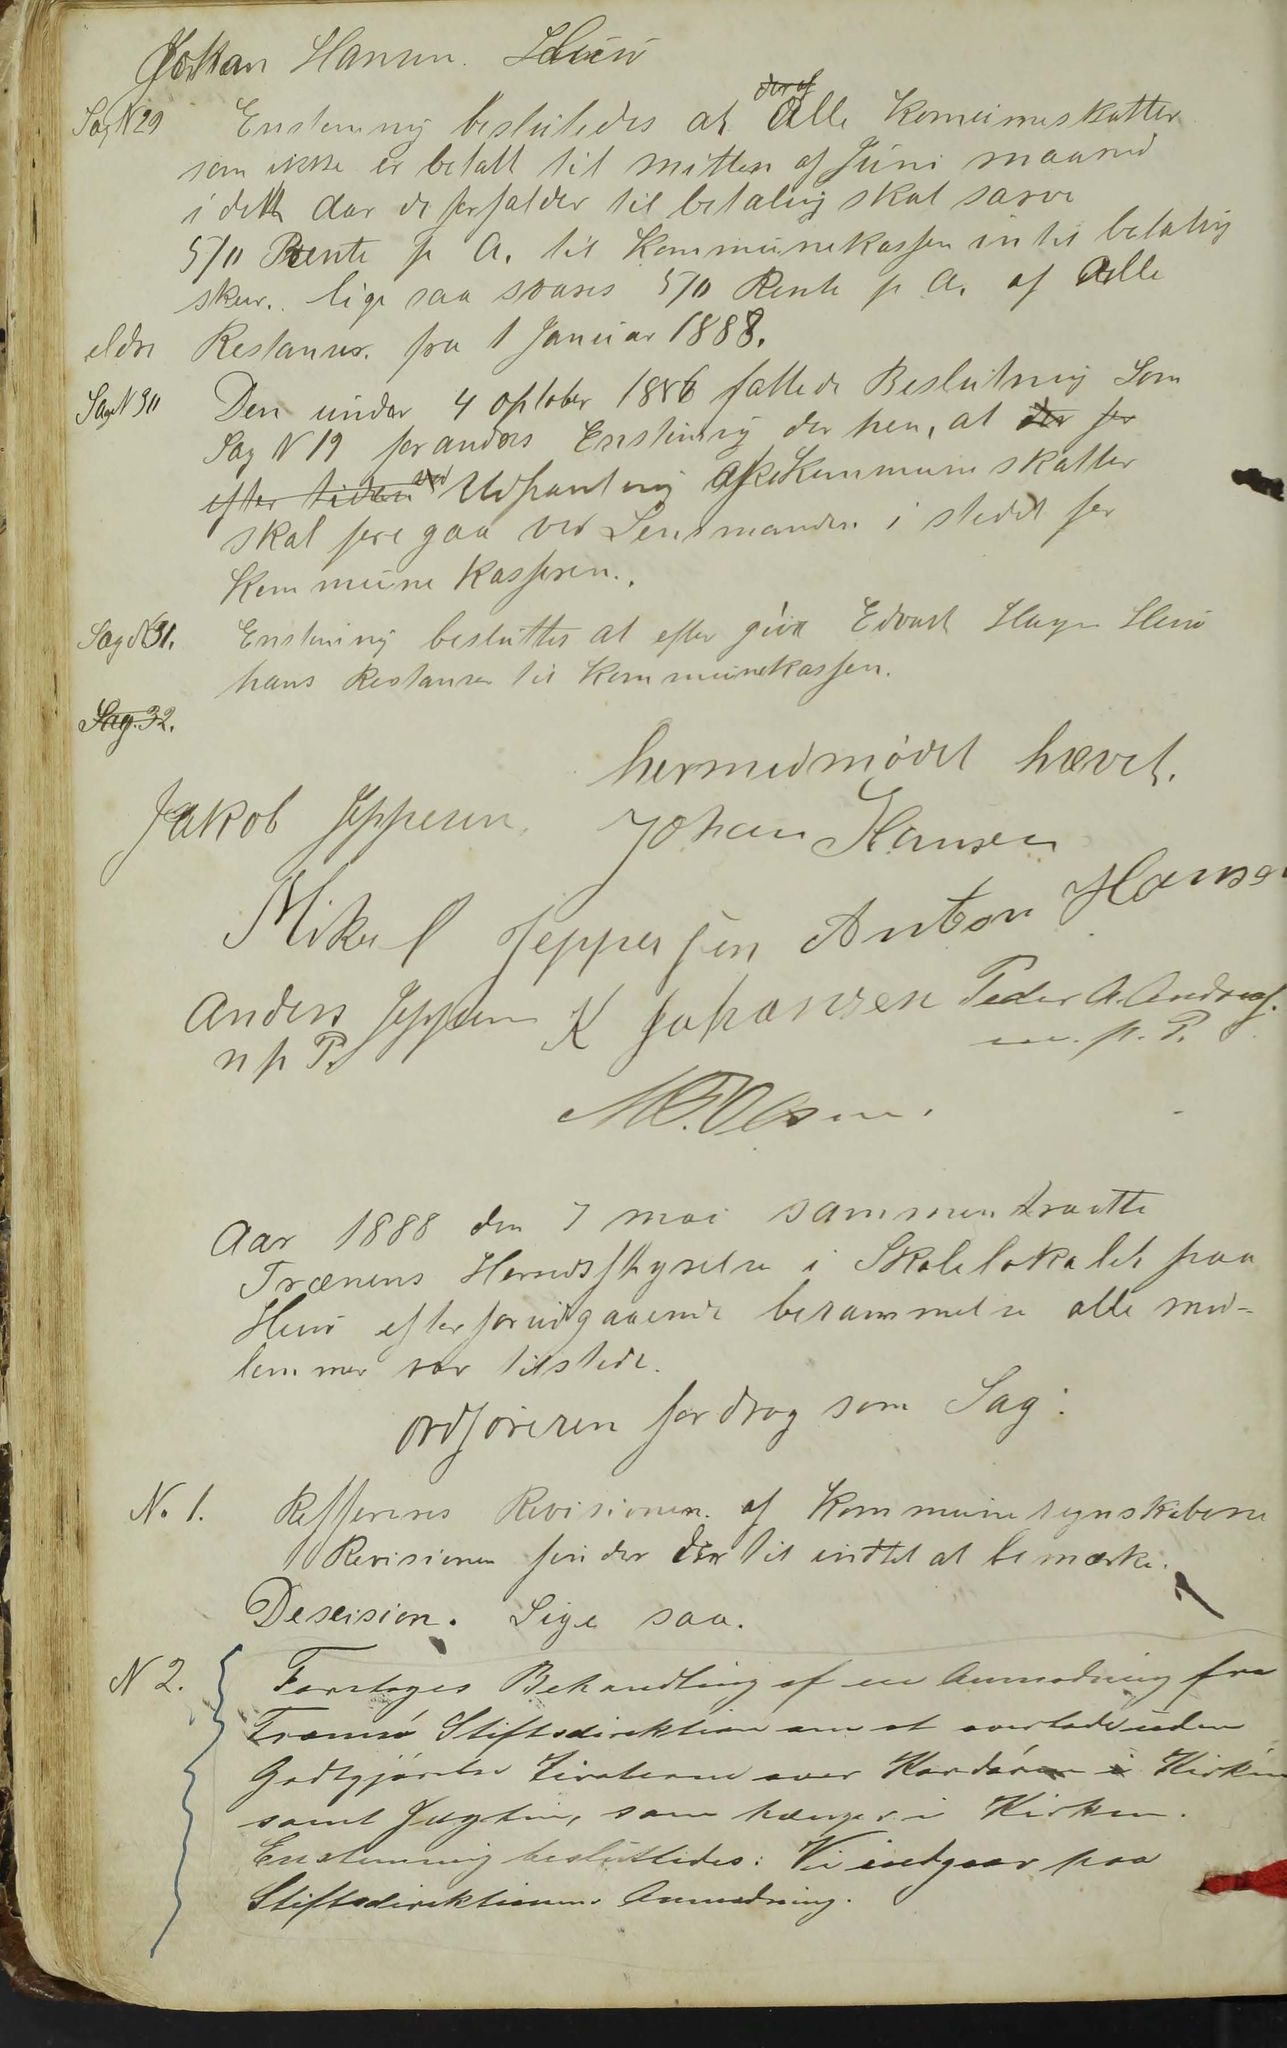 Johan Hansen. Husø
Sag N 29 Enstemig beslutedes at deraf alle Komuneskatter
som ikke er betalt til mitten af Juni maaned
i dett aar de forfalder til betaling skal svare
5/0 Rente p A. til Kommunekassen intil betaling
sker. lige saa svares 5/0 Rente p A. af alle
eldre Restanser. fra 1 Januar 1888.
Sag N 30 Den under 4 oktober 1886 fattede Beslutning Som
Sag N 19 forandres Enstemig der hen, at der for
efter tiden ved Udpantning af Kommune skatter
skal fore gaa ved Lensmanden i stedet for
Kommune Kasseren.
Sag N 31. Enstemig besluttes at efter give Edvart Hagen Husø
hans Restanser til Kommunekassen.
Sag. 32.
hermed mødet hævet.
Jakob Jeppesen. Johan Hansen
Mikal Jeppesen Anton Hansen
Anders Jeppesen K Johansen Peder A. Andreas.
m p P. m. p. P.
M. Olsen.
Aar 1888 den 7 mai sammentraatte
Trænens Herredsstyrelse i Skolelokalet paa
Husø efter forudgaaende berammelse alle med-
lemmer var tilstede.
ordføreren fordrog som Sag:
No. 1. Refferers Revisionen. af Kommuneregnskaberne
Revisionen finder der til indtet at bemærke.
Descision. Lige saa.
N 2. Foretoges Behandling af en Anmodning fra
Tromsø Stiftsdirektion om at overlade uden
Godtgjørelse Ziraterne over Kordøren i Kirken
samt Jagten, som hænger i Kirken.
Enstemmig besluttedes: Vi indgaar paa
Stiftsdirektionens Anmodning.